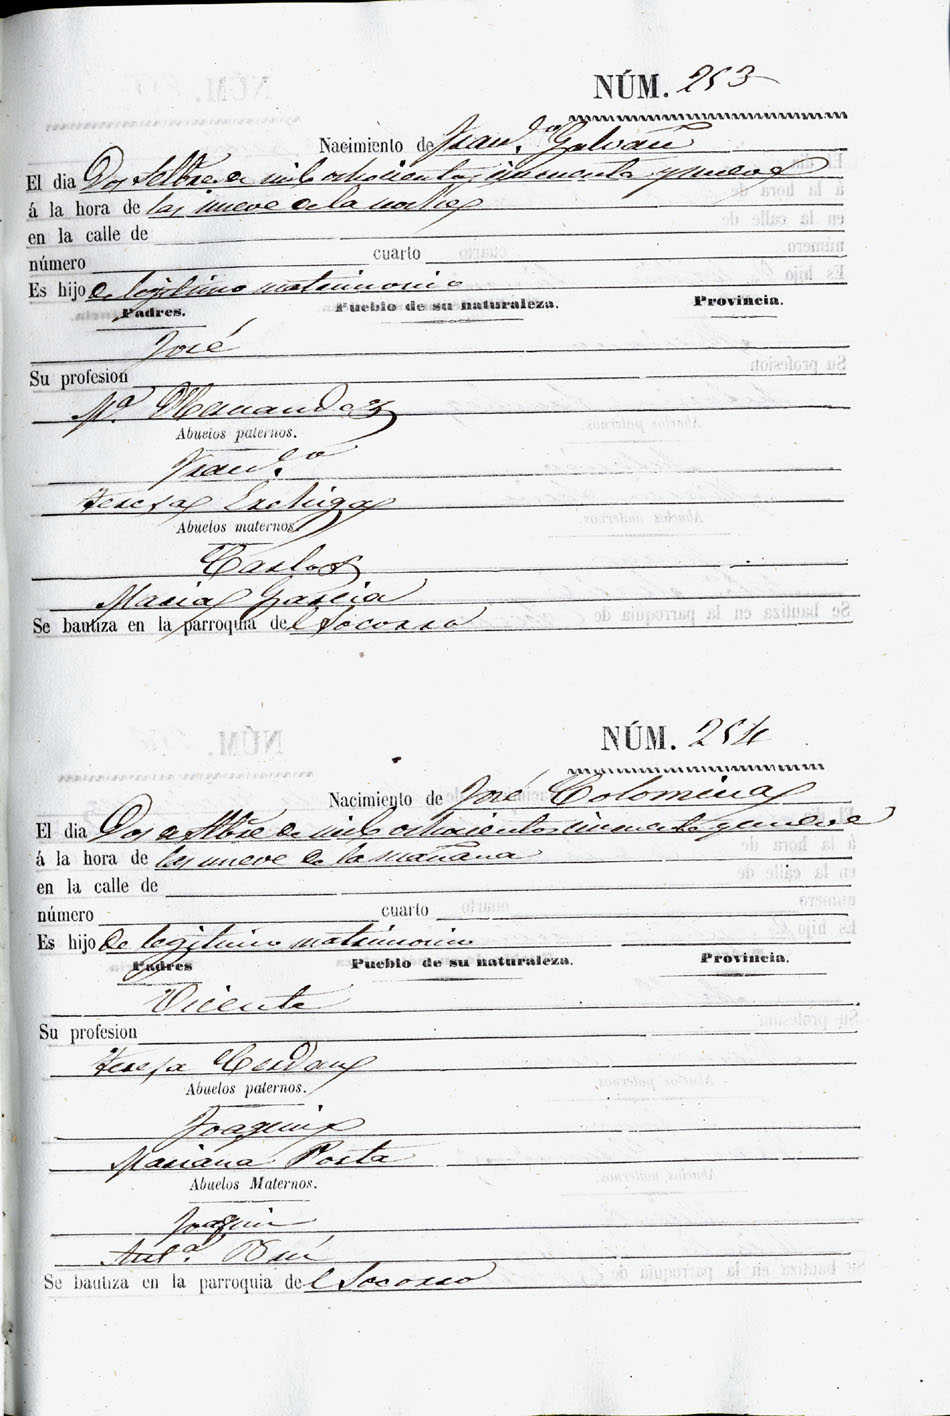 NÚM. 253
Nacimiento de Fran.co Galvañ
El dia Dos Stbre de mil ochocientos cincuenta y nueve
á la hora de las nueve de la noche
en la calle de
número cuarto
Es hijo de legitimo matrimonio
Padres. Pueblo de su naturaleza. Provincia.
José
Su profesion
Mª Hernandez
Abuelos paternos.
Fran.co
Teresa
Abuelos maternos.
Carlos
Maria Garcia
Se bautiza en la parroquia del Socorro
NÚM. 254
Nacimiento de José Colomina
El dia Dos de Stbre de mil ochocientos cincuenta y nueve
á la hora de las nueve de la mañana
en la calle de
número cuarto
Es hijo de legitimo matrimonio
Padres Pueblo de su naturaleza. Provincia.
Vicente
Su profesion
Teresa Cerdan
Abuelos paternos.
Joaquin
Mariana Porta
Abuelos Maternos.
Joaquin
Ant.ª
Se bautiza en la parroquia del Socorro